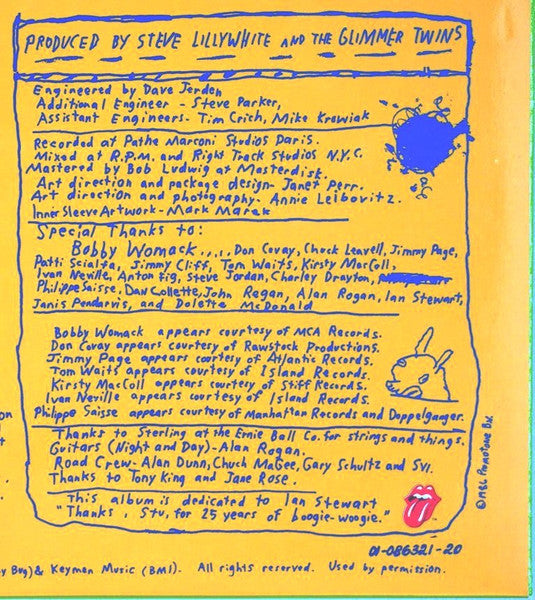 PRODUCED BY STEVE LILLYWHITE AND THE GLIMMER TWINS
Engineered by Dave Jerden
Additional Engineer - Steve Parker,
Assistant Engineers - Tim Crich, Mike Krowiak
Recorded at Pathe Marconi Studios Paris.
Mixed at R.P.M. and Right Track Studios N.Y.C.
Mastered by Bob Ludwig at Masterdisk.
Art direction and package design - Janet Perr.
Art direction and photography - Annie Leibovitz.
Inner Sleeve Artwork - Mark Marek
Special Thanks to:
Bobby Womack...., Don Covay, Chuck Leavell, Jimmy Page,
Patti Scialfa, Jimmy Cliff, Tom Waits, Kirsty MacColl,
Ivan Neville, Anton Fig, Steve Jordan, Charley Drayton,
Philippe Saisse, Dan Collette, John Regan, Alan Rogan, Ian Stewart,
Janis Pendarvis, and Dolette McDonald
Bobby Womack appears courtesy of MCA Records.
Don Covay appears courtesy of Rawstock Productions.
Jimmy Page appears courtesy of Atlantic Records.
Tom Waits appears courtesy of Island Records.
Kirsty MacColl appears courtesy of Stiff Records.
Ivan Neville appears courtesy of Island Records.
Philippe Saisse appears courtesy of Manhattan Records and Doppelganger.
Thanks to Sterling at the Ernie Ball Co. for strings and things.
Guitars (Night and Day) - Alan Rogan.
Road Crew - Alan Dunn, Chuck MaGee, Gary Schultz and Svi.
Thanks to Tony King and Jane Rose.
This album is dedicated to Ian Stewart
"Thanks, Stu, for 25 years of boogie-woogie."
01-086321-20
y Bug) & Keyman Music (BMI). All rights reserved. Used by permission.
on
t
© 1986 Promotone B.V.